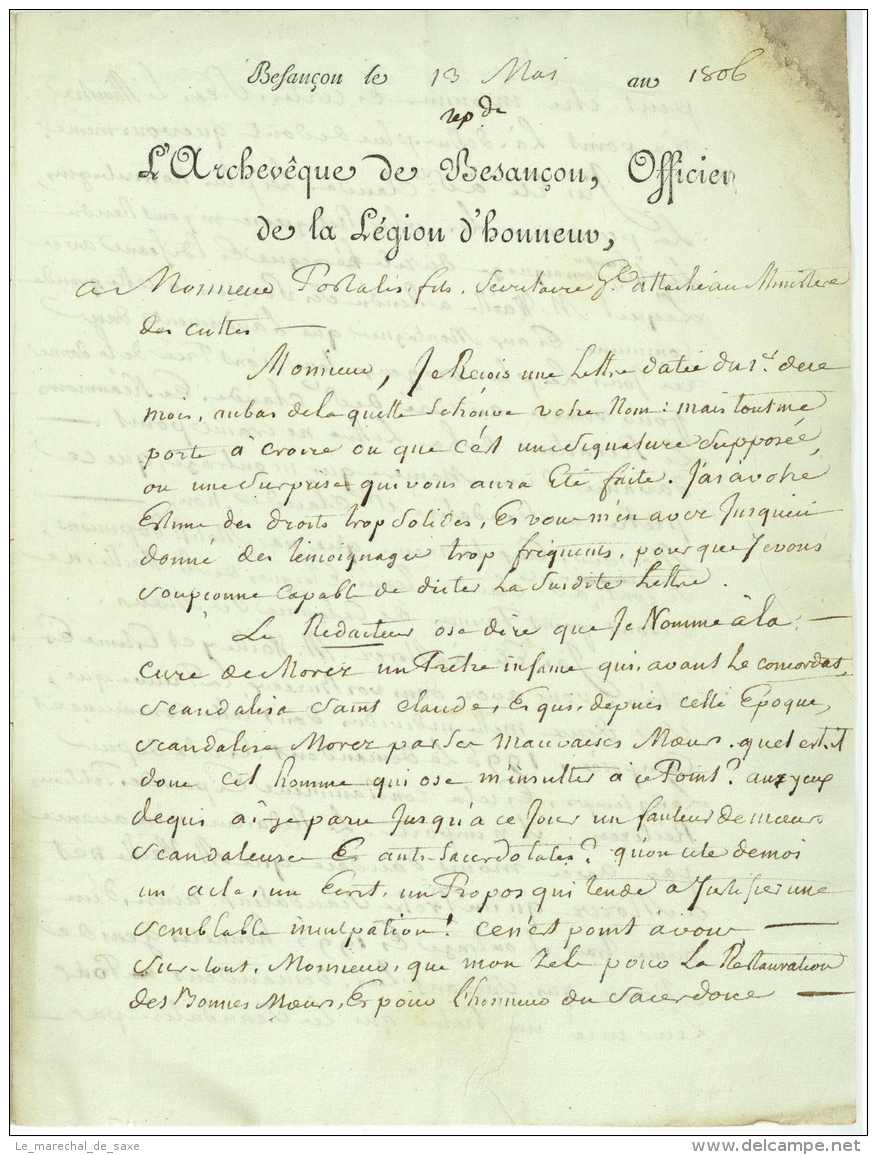 Besançon le 13 Mai an 1806
rep.de
L'Archevêque de Besançon, Officier
de la Légion d'honneur,
a Monsieur Portalis fils, Secretaire Gal attaché au Ministere
des cultes —
Monsieur, Je Reçois une Lettre datée du 1er de ce
mois, au bas de la quelle se trouve votre Nom : mais tout me
porte à croire ou que c'est une signature supposée,
ou une surprise qui vous aura Eté faite. J'ai a votre
Estime des droits trop solides, Et vous m'en avez Jusqu'ici
donné des témoignages trop fréquents, pour que Je vous
soupçonne capable de dicter La susdite Lettre.
Le Rédacteur ose dire que Je Nomme à la —
cure de Morez un Prêtre infame qui, avant Le concordat,
scandalisa Saint Claude, Et qui, depuis cette Epoque,
scandalise Morez par ses mauvaises Mœurs. quel est-il
donc cet homme qui ose m'insulter à ce Point ? aux yeux
de qui ai-je paru Jusqu'à ce Jour un fauteur de mœurs
scandaleuses Et anti-Sacerdotales ? qu'on cite de moi
un acte, un Ecrit, un Propos qui tende a Justifier une
semblable inculpation ! ce n'est point à vous —
sur-tout, Monsieur, que mon Zele pour La Restauration
des Bonnes Mœurs, Et pour l'honneur du Sacerdoce —
Le_marechal_de_saxe
www.delcampe.net